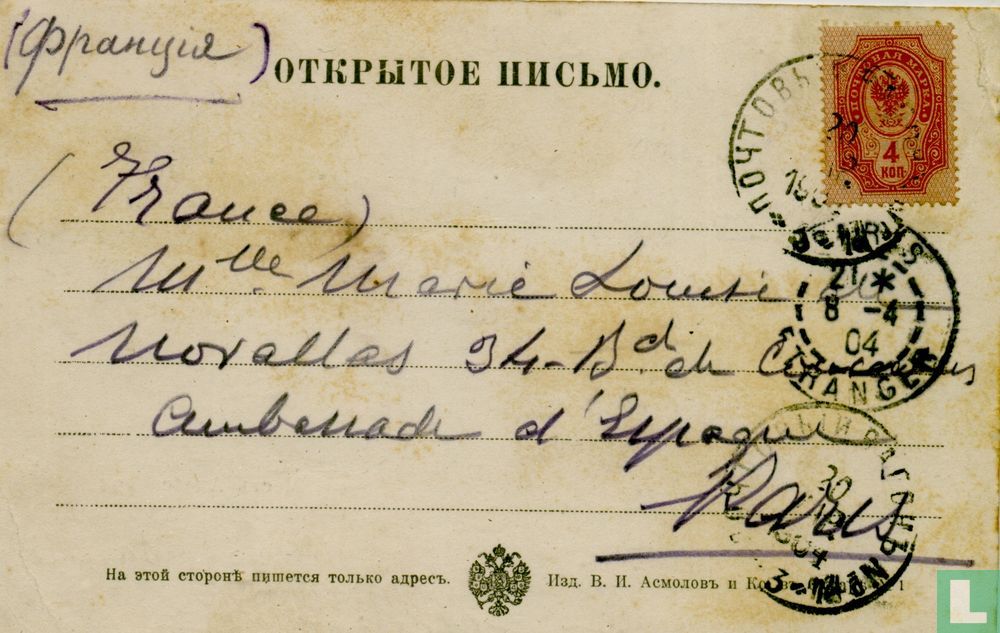 (Франція)
ОТКРЫТОЕ ПИСЬМО.
ПОЧТОВАЯ МАРКА
4
КОП
ПОЧТОВЫ
(France)
Mlle Marie Louise de
21 *
8 -4
04
ETRANGER
Morallas 34-Bd. de Courcelles
Ambassade d'Espagne
Paris
30
1904
На этой сторонѣ пишется только адресъ.
Изд. В. И. Асмоловъ и Ко
L